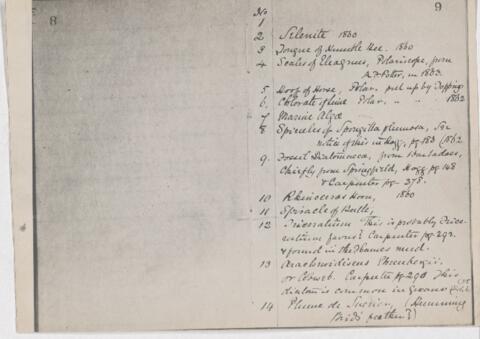 8
9
No
1
2 Selenite 1860
3 Tongue of Humble Bee. 1860
4 Scales of Eleagnus, Polariscope, from
in 1863.
5 Hoof of Horse, Polar. put up by Topping
6 Chlorate of Polar. " " 1862
7 Marine Algæ
8 Spicules of Spongilla plumosa, See
notice of this in Hogg, pg 183 (1862
9. Fossil Diatomacea, from Barbadoes,
Chiefly from Springfield, Hogg pg 148
& Carpenter pg. 278.
10 Rhinoceros Horn, 1860
11 Spiracle of Beetle,
12 Triceratium This is probably Trice-
ratium favus? Carpenter pg. 292.
& found in the Thames mud.
13 Arachnoidiscus Ehrenbergii.
or Cobweb. Carpenter pg 290 This
diatom is common in Guano
14 Plume de (Humming
Birds feather?)